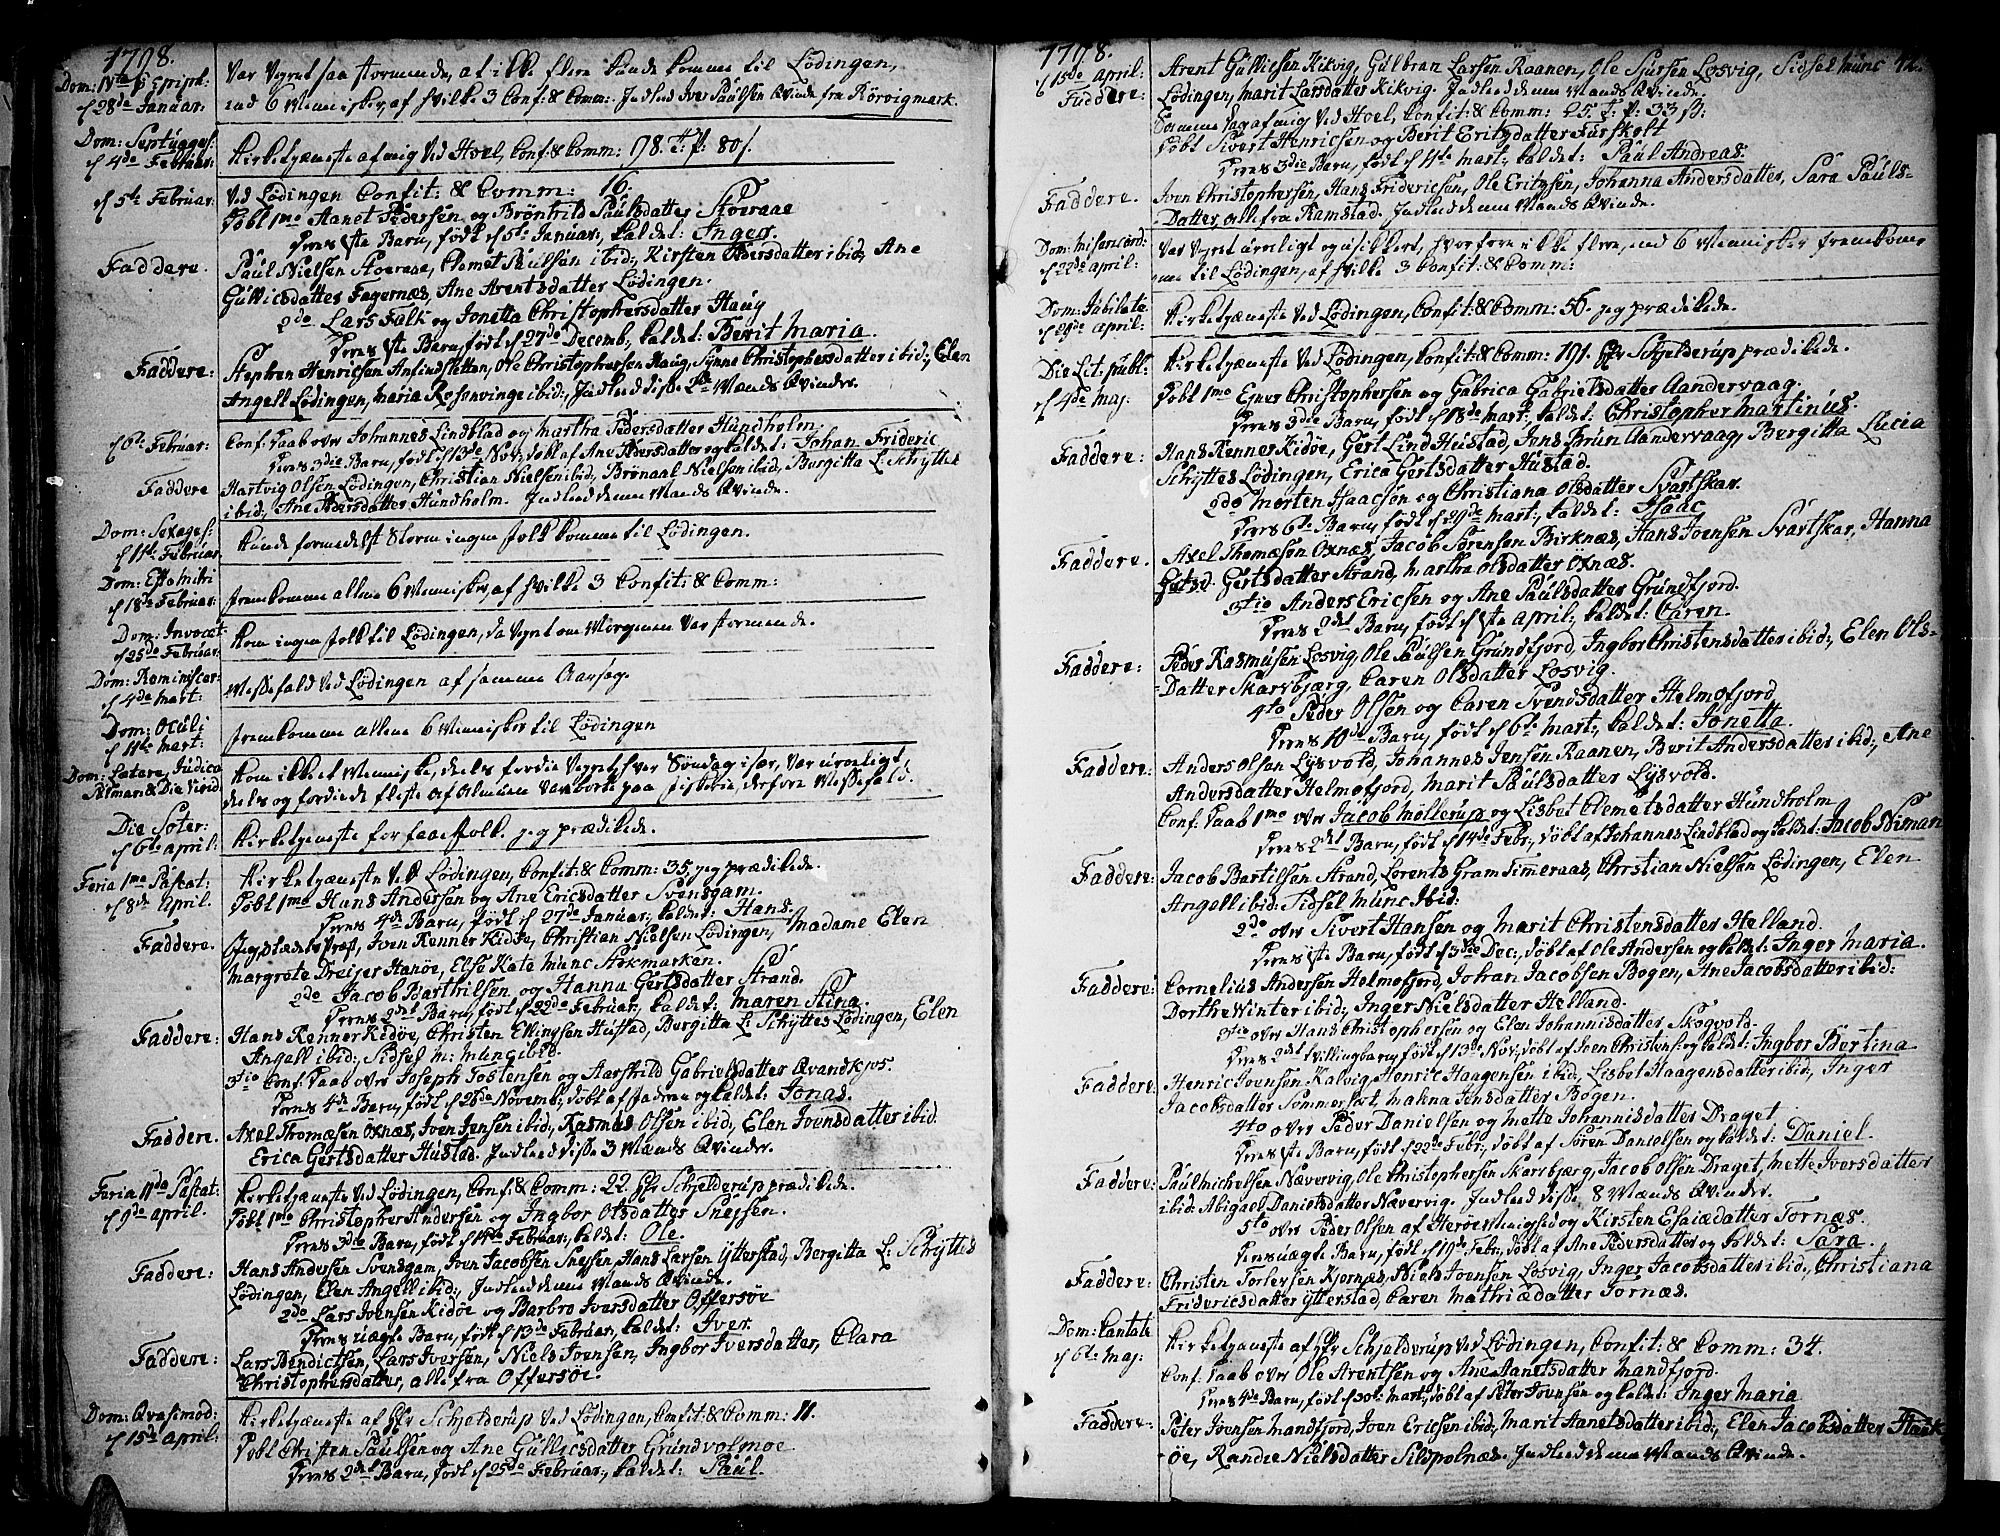 1798.
Dom: IVta p. Epiph.
d 28de Januar.
Var Veyret saa stormende, at ikke flere kunde komme til Lödingen,
end 6 Mennisker, af hvilke 3 Conf: & Comm: Indled Iver Paülsen Qvinde fra Rörvigmark.
Dom: Septuages:
d 4de Februar:
Kirketjeneste af mig ved Hoel, Conf: & Comm: 78. T. p: 80 s.
d 5te Februar:
Ved Lödingen Confit: & Comm: 16.
Döbt 1mo Aanet Pedersen, og Bröntild Paülsdatter Stoeraae
Deres 1ste Barn, födt d 5te Januar:, kaldet: Inger.
Faddere.
Paul Nielsen Stoeraae, Clemet Paulsen ibid:, Kirsten Pedersdatter ibid:, Ane
Güllicsdatter Fagernæs, Ane Arentsdatter Lödingen.
2do Lars Falk og Jonetta Christophersdatter Haug
Deres 1ste Barn, födt d 27de Decemb:, kaldet: Berit Maria.
Faddere:
Stephen Henricsen Anfindsletten, Ole Christophersen Haug, Synne Christophersdatter ibid:, Elen
Angell Lödingen, Maria Rosenvinge ibid:, Indled disse 2de Mænds Qvinder.
d 6te Februar:
Conf: Daab over Johannes Lindblad og Martha Pedersdatter Hundholm.
Deres 3die Barn, födt d 13de Nov:, döbt af Ane Pedersdatter og kaldet: Johan Frideric
Faddere
Hartvig Olsen Lödingen, Christian Nielsen ibid:, Brönaal Nielsen ibid:, Burgitta L: Schyttes
ibid:, Ane Pedersdatter Hündholm. Indled denne Mands Qvinde.
Dom: Sexages:
d 11te Februar.
Kunde formedelst Storm ingen folk komme til Lödingen.
Dom: Esto Mihi
d 18de Februar:
fremkomme allene 6 Mennisker, af hvilke 3 Confit: & Comm:
Dom: Invocat
d 25de Februar:
Kom ingen folk til Lödingen, da Veyret om Morgenen var stormende.
Dom: Reminiscer:
d 4de Mart:
Messefald ved Lödingen af samme Aarsag.
Dom: Oculi:
d 11te Mart:
fremkomme allene 6 Mennisker til Lödingen
Dom: Lætare, Judica
Palmar: & Die Virid
Kom ikke et Menniske, deels fordi Veyret, hver Söndag især, var uroeligt,
deels og fordi de fleste af Almuen var borte paa fiskerie, derfore Messefald.
Die Soter:
d 6te April:
Kirketjeneste for faae folk. jeg prædikede.
Feria 1ma Pascat:
d 8de April.
Kirketjeneste ved Lödingen, Confit: & Comm: 35. jeg prædikede.
Döbt 1mo Hans Andersen og Ane Ericsdatter Svensgam.
Deres 4de Barn, födt d 27de Januar:, kaldet: Hans.
Faddere.
Jeg, Stædets Præst, Iven Renner Kidöe, Christian Nielsen Lödingen, Madame Elen
Margrete Dreijer Hanöe, Else Kate Munc Stokmarken.
2do Jacob Barthilsen og Hanna Gertsdatter Strand.
Deres 2det Barn, födt d 22de Februar:, kaldet: Maren Stina.
Faddere:
Hans Renner Kidöe, Christen Ellingsen Hustad, Bergitta L: Schyttes Lödingen, Elen
Angell ibid:, Sidsel M: Munc ibid:
3tio Conf: Daab over Joseph Tostensen og Aarshild Gabrielsdatter Qvandkjos.
Deres 4de Barn, födt d 26de Novemb:, döbt af faderen og kaldet: Jonas.
Faddere.
Axel Thomæsen Oxnæs, Iven Jensen ibid:, Rasmus Olsen ibid:, Elen Ivensdatter ibid:
Erica Gertsdatter Hustad. Indled disse 3 Mænds Qvinder.
Feria IIda Pascat:
d 9de April.
Kirketjeneste ved Lödingen, Conf: & Comm: 22. Hr Schjelderup prædikede.
Döbt 1mo Christopher Andersen og Ingbor Olsdatter Snejsen.
Deres 3die Barn, födt d 14de Februar:, kaldet: Ole.
Faddere:
Hans Andersen Svensgam, Iven Jacobsen Snejsen, Hans Larsen Ytterstad, Bergitta L: Schyttes
Lödingen, Elen Angell ibid:, Indled denne Mands Qvinde.
2do Lars Ivensen Kidöe og Barbro Iversdatter Offersöe
Deres uægte Barn, födt d 13de Februar:, kaldet: Iver.
Faddere:
Lars Bendictsen, Lars Iversen, Niels Ivensen, Ingbor Iversdatter, Clara
Christophersdatter, alle fra Offersöe.
Dom: Qvasimod:
d 15de April:
Kirketjeneste af Hr Schjelderup ved Lödingen, Confit: & Comm: 11.
Döbt Christen Paülsen og Ane Güllicsdatter Grundvolmoe
Deres 2det Barn, födt d 25de Februar:, kaldet: Paül.
1798.
42.
d 15de April:
Faddere:
Arent Güllicsen Kikvig, Gülbran Larsen Raanen, Ole Sjursen Losvig, Sidsel Munc
Lödingen, Marit Larsdatter Kikvig. Indled denne Mands Qvinde.
Samme Dag af mig ved Hoel, Confit: & Comm: 25. T. p: 33 s:
Döbt Sivert Henricsen og Berit Eritzdatter Furskolt
Deres 3die Barn, födt d 11te Mart:, kaldet: Paül Andreas.
Faddere.
Iven Christophersen, Hans Fridericsen, Ole Eritzsen, Johanna Andersdatter, Sara Paüls-
Datter, alle fra Ramstad. Indled denne Mands Qvinde.
Dom: Misericord:
d 22de April:
Var Veyret uroeligt og usikkert, hvorfore ikke flere, end 6 Mennisker fremkom-
me til Lödingen, af hvilke 3 Confit: & Comm:
Dom: Jubilate
d 29de April:
Kirketjeneste ved Lödingen, Confit: & Comm: 56. jeg prædikede.
Die Lit: publ:
d 4de Maj:
Kirketjeneste ved Lödingen, Confit: & Comm: 101. Hr Schjelderup prædikede.
Döbt 1mo Ejner Christophersen og Gabrica Gabrielsdatter Aandervaag.
Deres 3de Barn, födt d 18de Mart:, kaldet: Christopher Martinüs.
Faddere:
Hans Renner Kidöe, Gert Lind Hustad, Jens Brün Aandervaag, Bergitta Lucia
Schyttes Lödingen, Erica Gertsdatter Hüstad.
2do Morten Isaacsen og Christiana Olsdatter Svartskar.
Deres 6te Barn, födt d 29de Mart:, kaldet: Isaac.
Faddere:
Axel Thomæsen Oxnæs, Jacob Sörensen Birknæs, Hans Ivensen Svartskar, Hanna
Gertsd: Gertsdatter Strand, Martha Olsdatter Oxnæs.
3tio Anders Ericsen og Ane Paülsdatter Grundfjord.
Deres 2det Barn, födt d 1ste April:, kaldet: Caren.
Faddere:
Peder Rasmusen Losvig, Ole Paülsen Grundfjord, Ingbor Christensdatter ibid:, Elen Ols-
Datter Skarsbjærg, Caren Olsdatter Losvig.
4to Peder Olsen og Caren Svendsdatter Helmofjord
Deres 10de Barn, födt d 6te Mart:, kaldet: Jonetta.
Faddere:
Anders Olsen Lysvold, Johannes Jensen Raanen, Berit Andersdatter ibid:, Ane
Andersdatter Helmofjord, Marit Paülsdatter Lysvold.
Conf: Daab 1mo over Jacob Möllerup og Lisbet Clemetsdatter Hundholm
Deres 2det Barn, födt d 14de Febr:, döbt af Johannes Lindblad og kaldet: Jacob Niman
Faddere:
Jacob Bartilsen Strand, Lorents Gram Timmeraas, Christian Nielsen Lödingen, Elen
Angell ibid: Sidsel Munc Ibid:
2do over Sivert Hansen og Marit Christensdatter Helland.
Deres 1ste Barn, födt d 3die Dec:, döbt af Ole Andersen og kaldet: Inger Maria.
Faddere:
Cornelius Andersen Helmofjord, Johan Jacobsen Bogen, Ane Jacobsdatter ibid:
Dorthe Winter ibid:, Inger Nielsdatter Helland.
3tio over Hans Christophersen og Elen Johannisdatter Skogvold.
Deres 2det Tvillingbarn, födt d 13de Nov:, döbt af Iven Christens: og kaldet: Ingbor Bertina
Faddere:
Henric Ivensen Kalvig, Henric Haagensen ibid:, Lisbet Haagensdatter ibid:, Inger
Jacobsdatter Sommerset, Makna Jensdatter Bogen.
4to over Peder Danielsen og Mette Johannisdatter Draget
Deres 1ste Barn, födt d 22de Febr:, döbt af Sören Danielsen og kaldet: Daniel.
Faddere:
Paül Michelsen Nævervig, Ole Christophersen Skarsbjærg, Jacob Olsen Draget, Mette Iversdatter
ibid: Abigael Danielsdatter Nævervig. Indled disse 8 Mænds Qvinder.
5to over Peder Olsen af Heröe Menighed og Kirsten Esaiædatter Tornæs.
Deres uægte Barn, födt d 19de Febr:, döbt af Ane Pedersdatter og kaldet: Sara.
Faddere:
Christen Torlevsen Kjornæs, Niels Ivensen Losvig, Inger Jacobsdatter ibid:, Christiana
Fridericsdatter Ytterstad, Caren Mathiædatter Tornæs.
Dom: Cantate
d 6te Maj:
Kirketjeneste af Hr Schjelderup ved Lödingen, Confit: & Comm: 34.
Conf: Daab over Ole Arentsen og Ane Aanetsdatter Mandfjord.
Deres 4de Barn, födt d 30te Mart:, döbt af Peter Ivensen og kaldet: Inger Maria
Faddere:
Peter Ivensen Mandfjord, Iven Ericsen ibid:, Marit Aanetsdatter ibid:, Elen Jacobsdatter Staik
öe, Randie Nielsdatter Sildpolnæs. Indled denne Mands Qvinde.